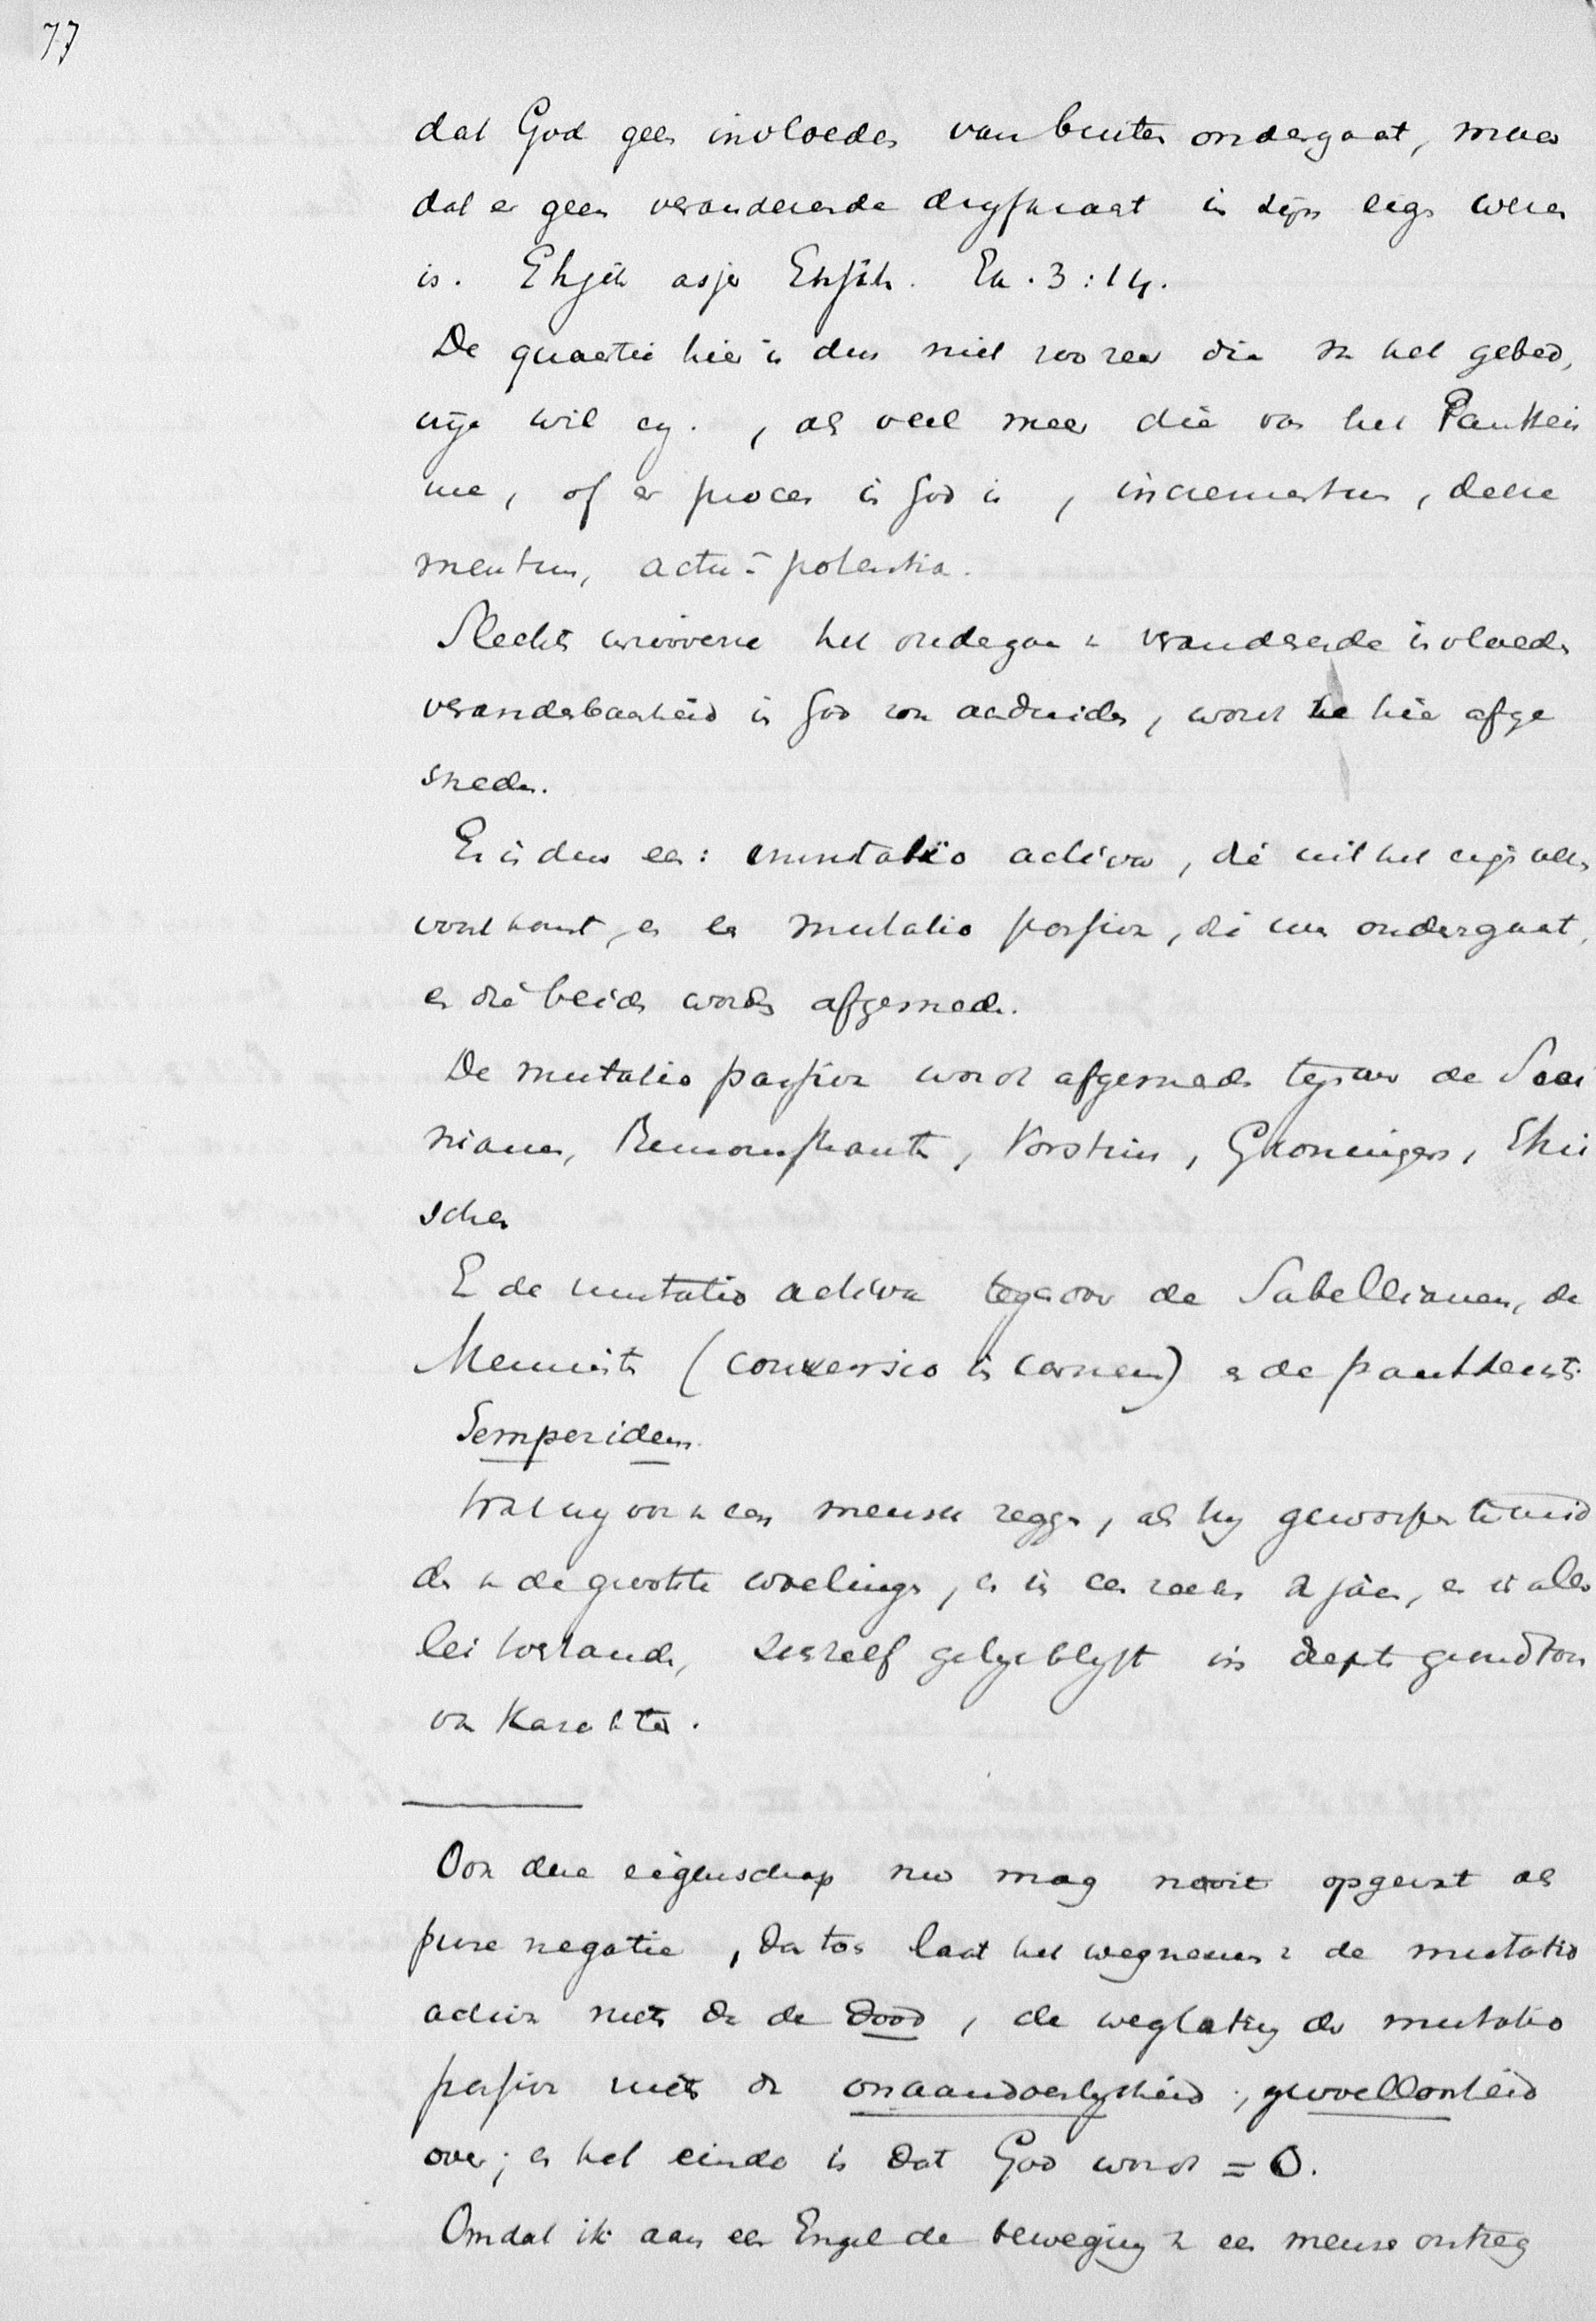 77
dat God geen invloeden van buiten ondergaat, maar
dat er geen veranderende dryfkracht in zijn eigen wezen
is. Ehjéh asjer Ehjéh. Ex. 3:14.
De quaestie hier is dus niet zoozeer die van het gebed,
vrije wil eg., als veel meer die van het Pantheis
me, of er proces in God is, incrementum, decre
mentum, actu - potentia.
Slechts inzooverre het ondergaan v. veranderende invloeden
veranderbaarheid in God zou aanduiden, wordt he hier afge
sneden.
Er is dus een: mutatio activa, die uit het eigen wezen
voortkomt, en een mutatio passiva, die men ondergaat,
en die beide worden afgesneden.
De mutatio passiva wordt afgesneden tegenover de Soci
nianen, Remonstranten, Vorstius, Groningers, Ethi
schen
En de mutatio activa tegenover de Sabellianen, de
Mennisten (conversio in carnem) en de pantheisten.
Semper idem.
Wat wij van een mensch zeggen, als hij geworpen te mid
den v. de grootste woelingen, en in een reeks v jaren, en in aller
lei toestanden, zichzelf gelijk blijft in diepte grondtoon
van Karakter.
Ook deze eigenschap nu mag nooit opgevat als
pure negatie, dan toch laat het wegnemen v de mutatio
activa niets dan de dood, de weglating der mutatio
passiva niets dan onaandoenlijkheid, gevoelloosheid
over; en het einde is dat God wordt = 0.
Omdat ik aan een Engel de beweging v een mensch ontzeg